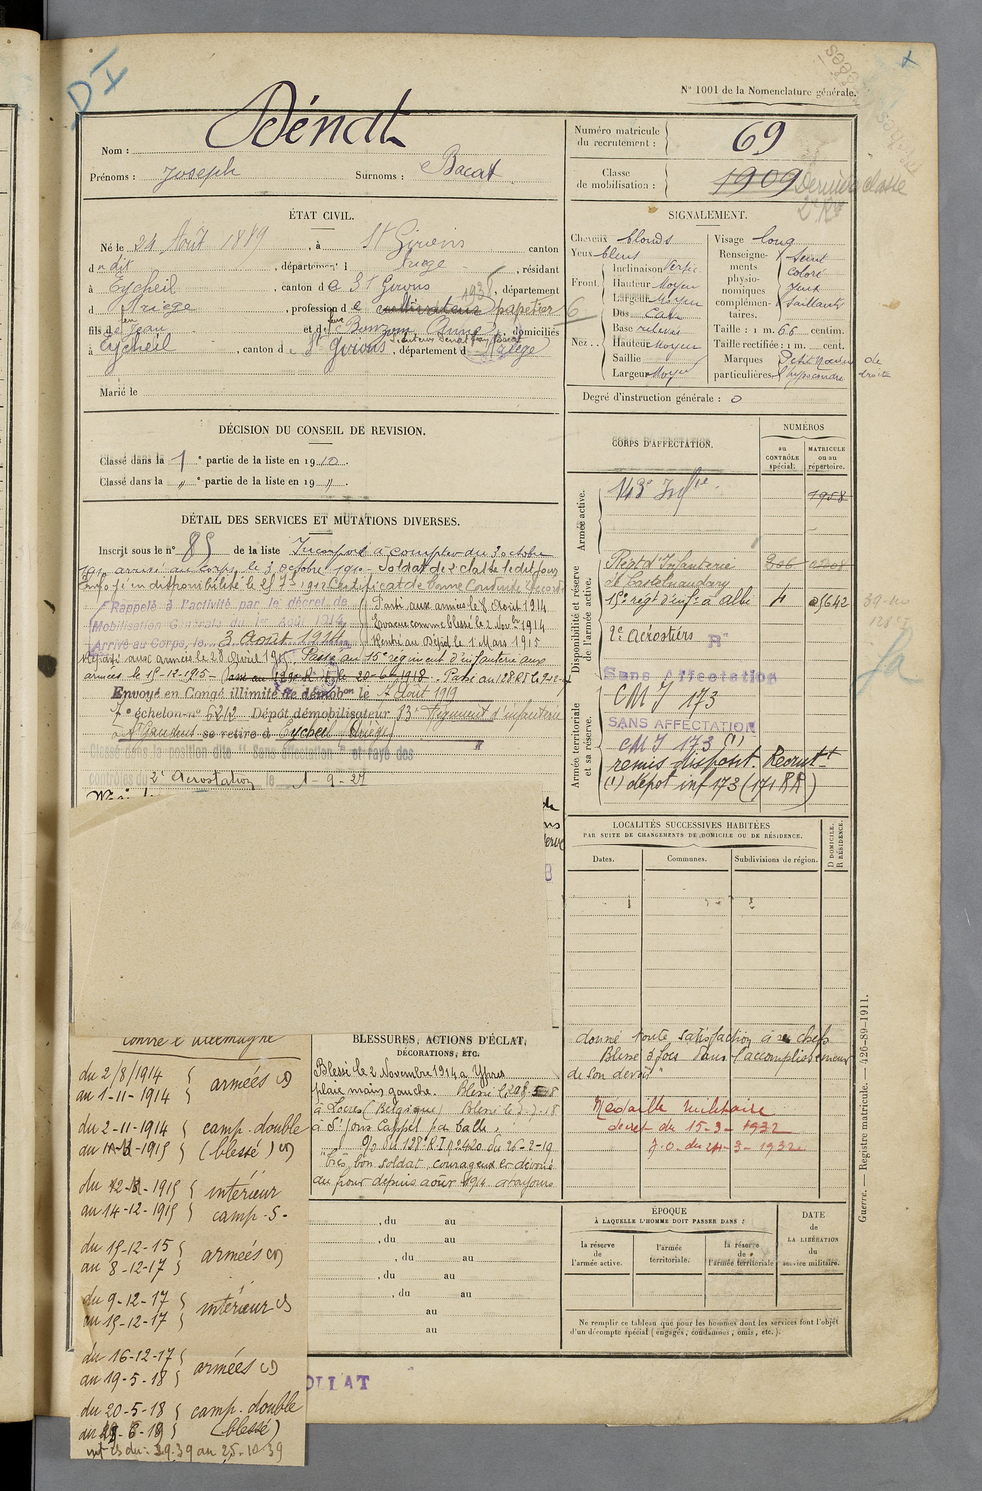 D I
N° 1001 de la Nomenclature générale.
Nom : Dénat
Prénoms : Joseph Surnoms : Bacat
Numéro matricule du recrutement : 69
Classe de mobilisation : 1909 Dernière classe
ÉTAT CIVIL.
Né le 21 Août 1889, à St Girons canton
du dit, département d Ariège, résidant
à Eycheil, canton de St Girons, département
d Ariège, profession de cultivateur papetier
fils de feu Jean et de feue Anne, domiciliés
à Eycheil, canton de St Girons, département d Ariège
Marié le
SIGNALEMENT.
Cheveux blonds
Yeux bleus
Front. Inclinaison Vertic
Hauteur Moyen
Largeur Moyen
Nez : Dos Cave
Base relevée
Hauteur Moyen
Saillie
Largeur Moyen
Visage long
Renseignements physionomiques complémentaires. Teint coloré Yeux saillants
Taille : 1 m. 66 centim.
Taille rectifiée : 1 m. cent.
Marques particulières
Degré d'instruction générale : 0
DÉCISION DU CONSEIL DE REVISION.
Classé dans la 1e partie de la liste en 1910.
Classé dans la " e partie de la liste en 19 ".
DÉTAIL DES SERVICES ET MUTATIONS DIVERSES.
Inscrit sous le n° 85 de la liste Incorporé à compter du 3 octobre
1910 arrivé au corps le 3 octobre 1910 Soldat de 2e classe le dit jour
Envoyé en disponibilité le 25 7bre 1912 Certificat de Bonne Conduite Accordé
Rappelé à l'activité par le décret de Mobilisation Générale du 1er Août 1914
Arrivé au Corps, le 3 Août 1914
Parti aux armées le 8 Août 1914
Evacué comme blessé le 2 Novbre 1914
Rentré au Dépôt le 1 Mars 1915
Reparti aux armées le 28 Avril 1915. Passé au 15e régiment d'infanterie aux
armées le 15-12-1915 - le 20-6-1918 - Passé au 128 RI le
Envoyé en Congé illimité de démobon le 7 Août 1919
7e échelon n° 6212 Dépôt démobilisateur 83e Régiment d'infanterie
à St Gaudens se retire à Eycheil Ariège
Classé dans la position dite "Sans affectation" et rayé des
contrôles du 2e Aérostation le 1-9-27
CORPS D'AFFECTATION.
NUMÉROS
au CONTRÔLE spécial.
MATRICULE ou au répertoire.
Armée active.
143e Infie 1958
Disponibilité et réserve de l'armée active.
Régt d'Infanterie
de Castelnaudary
15e régt d'inf: à Albi 4 05642
2e Aérostiers
Sans Affectation
Armée territoriale et sa réserve.
CMI 173
SANS AFFECTATION
CMI 173 (1)
remis disposit. Recrutt
(1) dépôt inf 173 (171 RR)
LOCALITÉS SUCCESSIVES HABITÉES
PAR SUITE DE CHANGEMENTS DE DOMICILE OU DE RÉSIDENCE.
Dates. Communes. Subdivisions de région. D DOMICILE. R RÉSIDENCE.
contre l'Allemagne
du 2/8/1914 au 1-11-1914 armées
du 2-11-1914 camp. double (blessé)
intérieur
au 14-12-1915 camp. S.
du 15-12-15 au 8-12-17 armées
du 9-12-17 au 15-12-17 intérieur
du 16-12-17 au 19-5-18 armées
du 20-5-18 camp. double (blessé)
au 25-10-39
BLESSURES, ACTIONS D'ÉCLAT,
DÉCORATIONS, ETC.
Blessé le 2 Novembre 1914 à Ypres
plaie main gauche. Blessé le
à Locres (Belgique) Blessé le
à St Jans Cappel par balle.
O/ du 128e R.I n° 2420 du 26-2-19
"très bon soldat, courageux et dévoué
au front depuis août 1914 a toujours
donné toute satisfaction à ses chefs
Blessé 3 fois dans l'accomplissement
de son devoir"
Médaille militaire
décret du 15-3-1932
J.O. du 24-3-1932
, du au
, du au
, du au
, du au
, du au
au
au
ÉPOQUE
À LAQUELLE L'HOMME DOIT PASSER DANS :
la réserve de l'armée active.
l'armée territoriale.
la réserve de l'armée territoriale
DATE de LA LIBÉRATION du service militaire.
Ne remplir ce tableau que pour les hommes dont les services font l'objet
d'un décompte spécial (engagés, condamnés, omis, etc.).
Guerre. — Registre matricule. — 426-89-1911.
OLLAT